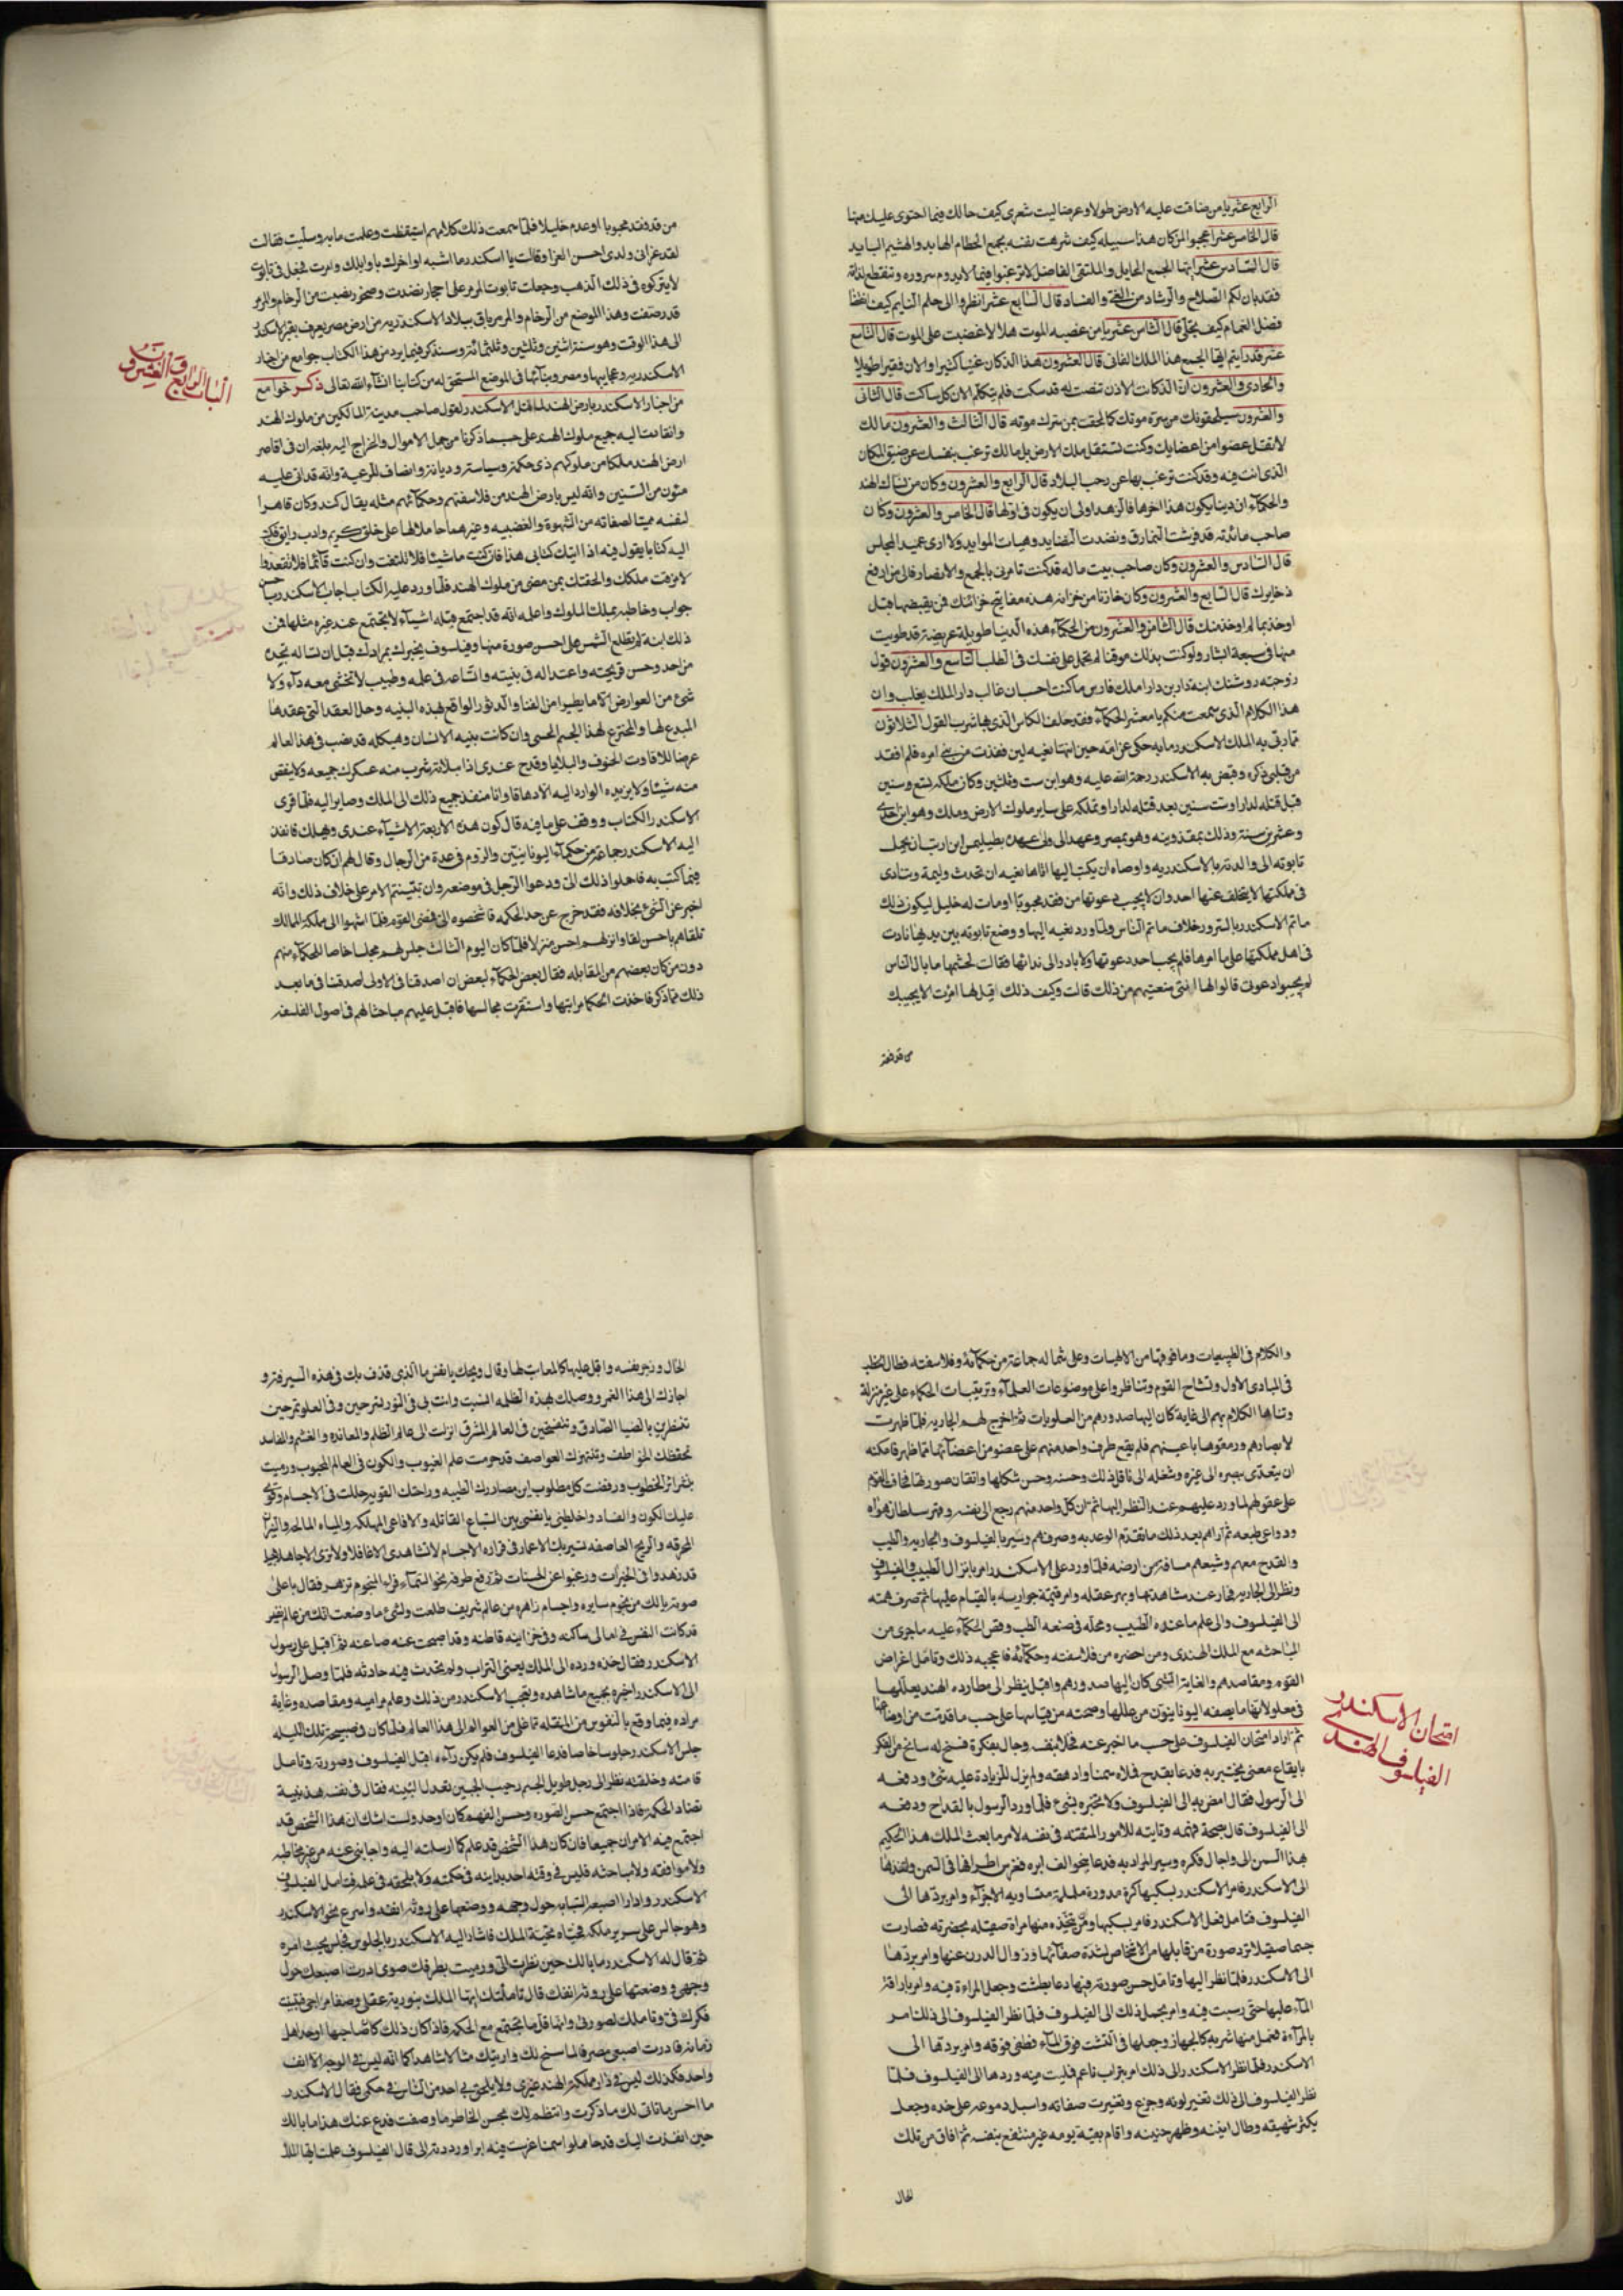 الرابع عشر يا من ضاقت عليه الارض طولا وعرضا ليت شعرى كيف حالك فيما احتوى عليك منها
قال الخامس عشر اعجبوا لمن كان هذا سبيله كيف شرهت نفسه بجمع الحطام الهابد والهشيم البايد
قال السادس عشر ايها الجمع الحابل والملتقى الفاضل لا ترغبوا فيما لا يدوم سروره وتنقطع لذاته
فقد بان لكم الصلاح والرشاد من الغى والفساد قال السابع عشر انظروا الى حلم النايم كيف انقضا
وظل الغمام كيف انجلى قال الثامن عشر يا من غضبه الموت هلا غضبت على الموت قال التاسع
عشر قد رايتم ايها الجمع هذا الملك الفانى قال العشرون هذا الذى كان غنيا كثيرا والان فقير اطويلا
والحادى والعشرون ان الذى كانت الاذن تنصت له قد سكت فلم يتكلم الان كل ساكت قال الثانى
والعشرون سيلحقونك من سره موتك كما لحقت بمن سرك موته قال الثالث والعشرون مالك
لا تقل عضوا من اعضايك وكنت تستقل ملك الارض بل مالك ترغب بنفسك عن ضيق المكان
الذى انت فيه وقد كنت ترغب بها عن رحب البلاد قال الرابع والعشرون وكان من نساك الهند
والحكماء ان دينا يكون هذا اخرها فالزهد اولى ان يكون فى اولها قال الخامس والعشرون وكان
صاحب مائدته قد فرشت النمارق ونضدت النضايد وهيات الموايد ولا ارى عميد المجلس
قال السادس والعشرون وكان صاحب بيت ماله قد كنت تامرنى بالجمع والادخار فالى من ادفع
ذخايرك قال السابع والعشرون وكان خازنا من خزانه هذه مفاتيح خزائنك فمن يقبضها قبل
اوخذ بما لم اوخذ منك قال الثامن والعشرون من الحكماء هذه الدنيا طويلة عريضة قد طويت
منها فى سبعة اشبار ولو كنت بذلك موقنا لم تحمل على نفسك فى الطلب التاسع والعشرون قول
زوجته روشنك ابنة دارا بن دارا ملك فارس ما كنت احسب ان غالب دارا الملك يغلب وان
هذا الكلام الذى سمعت منكم يا معشر الحكماء فقد خلف الكاس الذى بها شرب القول الثلاثون
قالت امه حين انتها نعيه لين فقدت من بنى امره فلم افقد
من قلبى ذكره وقبض به الاسكندر رحمة الله عليه وهو ابن ست وثلثين وكان ملكه تسع سنين
قبل قتله لدارا وست سنين بعد قتله لدارا وتملكه على ساير ملوك الارض وملك وهو ابن احدى
وعشرين سنة وذلك بمقدونيه وهو بمصر وعهد الى ولى عهده بطليموس ان يحمل
تابوته الى والدته بالاسكندريه واوصاه ان يكتب اليها اذا اتاها نعيه ان تحدث وليمة وتنادى
فى مملكتها لا يتخلف عنها احد وان لا يجيب دعوتها من فقد محبوبا او مات له خليل ليكون ذلك
ماتم الاسكندر بالسرور خلاف ماتم الناس ولما ورد نعيه اليها ووضع تابوته بين يديها نادت
فى اهل مملكتها على ما امرها فلم يجب احد دعوتها ولا بادر الى ندائها فقالت لحشمها ما بال الناس
لم يجيبوا دعوتى قالوا لها انتى منعتيهم من ذلك قالت وكيف ذلك قيل لها امرت الا يجيبك
من قد فقد
من قد فقد محبوبا او عدم خليلا فلما سمعت ذلك كلامهم استيقظت وعلمت ما به وسليت فقالت
لقد عزانى ولدى احسن العزا وقالت يا اسكندر ما اشبه اواخرك باوايلك وامرت فجعل فى تابوت
لا يتركوه فى ذلك الذهب وجعلت تابوت المرمر على احجار نضدت وصخور نصبت من الرخام والمرمر
قد رصفت وهذا الموضع من الرخام والمرمر باق ببلاد الاسكندريه من ارض مصر يعرف بقبر الاسكندر
الى هذا الوقت وهو سنة اثنين وثلثين وثلثمائة وسنذكر فيما يرد من هذا الكتاب جوامع من اخبار
الاسكندريه وعجايبها ومصر وبنائها فى الموضع المستحق له من كتابنا انشاء الله تعالى ذكر جوامع
الباب الرابع والعشرون
من اخبار الاسكندر بارض الهند لما قتل الاسكندر لفول صاحب مدينة المانكين من ملوك الهند
وانقادت اليه جميع ملوك الهند على حسب ما ذكرنا من حمل الاموال والخراج اليه بلغه ان فى اقاصى
ارض الهند ملكا من ملوكهم ذى حكمة وسياسة وديانة وانصاف للرعية وانه قد اتى عليه
مئون من السنين وانه ليس بارض الهند من فلاسفتهم وحكمائهم مثله يقال كند وكان قاهرا
لنفسه مميتا لصفاته من الشهوة والغضبيه وغيرهما حاملا لها على خلق كريم وادب رايق فكتب
اليه كتابا يقول فيه اذا اتيك كتابى هذا فان كنت ماشيا فلا تلتفت وان كنت قائما فلا تقعد والا
مزقت ملكك والحقتك بمن مضى من ملوك الهند فلما ورد عليه الكتاب اجاب الاسكندر باحسن
جواب وخاطبه بملك الملوك واعلمه انه قد اجتمع قبله اشياء لا يجتمع عند غيره مثلها فمن
ذلك ابنة لم تطلع الشمس على احسن صورة منها وفيلسوف يخبرك بمرادك قبل ان تساله بحدة
مزاجه وحسن قريحته واعتداله فى بنيته واتساعه فى علمه وطبيب لا تخشى معه داء ولا
شئ من العوارض الا ما يطرا من الفنا والدثور الواقع بهذه البنيه وحل العقد التى عقدها
المبدع لها والمخترع لهذا الجسم الحسى وان كانت بنيه الانسان وهيكله قد نصب فى هذا العالم
عرضا للافات والحتوف والبلايا وقدح عندى اذا ملاته شرب منه عسكرك جميعه ولا ينقص
منه شيئا ولا يزيده الوارد اليه الا دهاقا وانا منفذ جميع ذلك الى الملك وصاير اليه فلما قرى
الاسكندر الكتاب ووقف على ما فيه قال كون هذه الاربعة الاشياء عندى فانفذ
اليه الاسكندر جماعة من حكماء اليونانيين والروم فى عدة من الرجال وقال لهم ان كان صادقا
فيما كتب به فاحملوا ذلك الى ودعوا الرجل فى موضعه وان تبينتم الامر على خلاف ذلك وانه
اخبر عن الشئ بخلافه فقد خرج عن حد الحكمه فاشخصوه الى فمضى القوم فلما انتهوا الى مملكة الملك
تلقاهم باحسن لقا وانزلهم احسن منزلا فلما كان اليوم الثالث جلس لهم مجلسا خاصا للحكماء منهم
دون من كان بعضهم من المقابله فقال بعض الحكماء لبعض ان اصدقنا فى الاولى اصدقنا فى ما بعد
ذلك مما ذكر فاخذت الحكما مراتبها واستقرت مجالسها فاقبل عليهم مباحثا لهم فى اصول الفلسفه
والكلام فى الطبيعيات وما فوقها من الالهيات وعلى شماله جماعة من حكمائه وفلاسفته فطال الخطب
فى المبادى الاول وتشاح القوم وتناظروا على موضوعات العلماء وترتيبات الحكماء على غير منزلة
وتناها الكلام بهم الى غاية كان اليها صدورهم من العلويات ثم اخرج لهم الجاريه فلما ظهرت
لابصارهم ورمقوها باعينهم فلم يقع طرف واحد منهم على عضو من اعضائها مما ظهر فامكنه
ان يتعدى ببصره الى غيره وشغله الى تامل ذلك وحسنه وحسن شكلها واتقان صورتها فخاف القوم
على عقولهم لما ورد عليهم عند النظر اليها ثم ان كل واحد منهم رجع الى نفسه وقهر سلطان هواه
ودواعى طبعه ثم اراهم بعد ذلك ما تقدم الوعد به وصرفهم وسير بالفيلسوف والجاريه والطبيب
والقدح معهم وشيعهم مسافة من ارضه فلما ورد على الاسكندر امر بانزال الطبيب والفيلسوف
ونظر الى الجاريه فحار عند مشاهدتها وبهر عقله وامر قيمة جواريه بالقيام عليها ثم صرف همته
الى الفيلسوف والى علم ما عنده الطبيب ومحله فى صنعه الطب وقص الحكماء عليه ما جرى من
المباحثه مع الملك الهندى ومن احضره من فلاسفته وحكمائه فاعجبه ذلك وتامل اغراض
القوم ومقاصدهم والغاية التى كان اليها صدورهم واقبل ينظر الى مطارده الهند بعللها
فى معلولاتها وما يصفه اليونانيون من عللها وصحته من قياسها على حسب ما قدمت من اوضاعها
امتحان الاسكندر
الفيلسوف الهندى
ثم اراد امتحان الفيلسوف على حسب ما اخبر عنه فخلا بنفسه وجال بفكرة فسنح له سانح من الفكر
بايقاع معنى يختبر به فدعا بقدح فملاه سمنا وادهقه ولم يزل للزيادة عليه شئ ودفعه
الى الرسول فقال امض به الى الفيلسوف ولا تخبره بشئ فلما ورد الرسول بالقداح ودفعه
الى الفيلسوف قال بصحة فهمه وتانيه للامور المتقنه فى نفسه لامر ما بعث الملك هذا الحكيم
بهذا السمن الى واجال فكره وسبر المراد به فدعا بنحو الف ابره فغرس اطرافها فى السمن وانفذها
الى الاسكندر فامر الاسكندر بسبكها كرة مدورة ململمة متساويه الاجزاء وامر بردها الى
الفيلسوف فتامل فعل الاسكندر فامر بسبكها ومن يتخذ منها مراة صقيله بحضرته فصارت
جسما صقيلا ترد صورة من قابلها من الاشخاص لشدة صفائها وزوال الدرن عنها وامر بردها
الى الاسكندر فلما نظر اليها وتامل حسن صورته فيها دعا بطشت وجعل المراءة فيه وامر باراقة
الماء عليها حتى رسبت فيه وامر بحمل ذلك الى الفيلسوف فلما نظر الفيلسوف الى ذلك امر
بالمراءة فعمل منها شربه كالجهاز وجعلها فى الطشت فوق الماء فطفى فوقه وامر بردها الى
الاسكندر فلما نظر الاسكندر الى ذلك امر بتراب ناعم فملئت منه وردها الى الفيلسوف فلما
نظر الفيلسوف الى ذلك تغير لونه وجزع وتغيرت صفاته واسبل دموعه على خده وجعل
يكثر شهيقه وطال انينه وظهر حنينه واقام بقية يومه غير منتفع بنفسه ثم افاق من تلك
الحال
الحال وزجر نفسه واقبل عليها كالمعاتب لها وقال ويحك يا نفس ما الذى قذف بك فى هذه
اجازك الى هذا الغمر ووصلك بهذه الظلمه الست وانت بى فى النور تسرحين وفى العلو تمرحين
تنظرين بالضيا الصادق وتنفسحين فى العالم المشرق انزلت الى عالم الظلم والمعانده والغشم والمفاسد
تخطفك الخواطف وتنتهزك العواصف قد حرمت علم الغيوب والكون فى العالم المحبوب ورميت
بشرايز الخطوب ورفضت كل مطلوب اين مصادرك الطيبه وراحتك القويه حللت فى الاجسام وقوى
عليك الكون والفساد واخلطتى يا نفسى بين السباع القاتله والافاعى المهلكه والمياه المالحه والنيران
المحرقه والريح العاصفه تسير بك الاعمار فى قراره الاجسام لا تشاهدى الا غافلا ولا ترى الا جاهلا
قد زهدوا فى الخيرات ورغبوا عن الحسنات ثم رفع طرفه نحو السماء فراى النجوم تزهر فقال باعلى
صوته يا لك من نجوم سايره واجسام زاهره من عالم شريف طلعت ولشئ ما وضعت انك من عالم نفيس
قد كانت النفس فى اعالى ساكنه وفى خزاينه قاطنه وقد اصبحت عنه ضاعنه ثم اقبل على رسول
الاسكندر فقال خذه ورده الى الملك يعنى التراب ولم يحدث فيه حادثه فلما وصل الرسول
الى الاسكندر اخبره بجميع ما شاهده فتعجب الاسكندر من ذلك وعلم مراميه ومقاصده وغاية
مراده فيما وقع بالنفوس من النقله مما على من العوالم الى هذا العالم فلما كان فى صبيحة تلك الليله
جلس الاسكندر جلوسا خاصا فدعا الفيلسوف فلم يكن رآءه اقبل الفيلسوف وصورته وتامل
قامته وخلقته نظر الى رجل طويل الجسم رحيب الجبين معتدل البنيه فقال فى نفسه هذه بنية
تضاد الحكمه فاذا اجتمع حسن الصوره وحسن الفهم كان اوحد ولست اشك ان هذا الشخص قد
اجتمع فيه الامران جميعا فان كان هذا الشخص قد علم كلما ارسلته اليه واجابنى عنه من غير مخاطبه
ولا موافقه ولا مباحثه فليس فى وقته احد يدانيه فى حكمته ولا يلحقه فى علمه فتامل الفيلسوف
الاسكندر وادار اصبعه السبابه حول وجهه ووضعها على روثة انفه واسرع نحو الاسكندر
وهو جالس على سرير ملكه فحياه بتحية الملك فاشار اليه الاسكندر بالجلوس فجلس بحيث امره
ثم قال له الاسكندر ما بالك حين نظرت الى ورميت بطرفك صوى ادرت اصبعك حول
وجهك ووضعتها على روثة انفك قال تاملتك ايها الملك بنورية عقلى وصفا مزاجى فتبينت
فكرك فى وتاملك لصورتى وانها قل ما تجتمع مع الحكمه فاذا كان ذلك كان صاحبها اوحد اهل
زمانه فادرت اصبعى مصرفا لما سنح لك واريتك مثالا شاهدا كما انه ليس فى الوجه الا انف
واحد فكذلك ليس فى دار مملكة الهند غيرى ولا يلحق بى احد من الناس فى حكمى فقال الاسكندر
ما احسن ما تاتى لك ما ذكرت وانتظم لك بحسن الخاطر ما وصفت فدع عنك هذا ما بالك
حين انفذت اليك قدحا مملوا سمنا غرست فيه ابرا ورددته الى قال الفيلسوف علمت ايها الملك